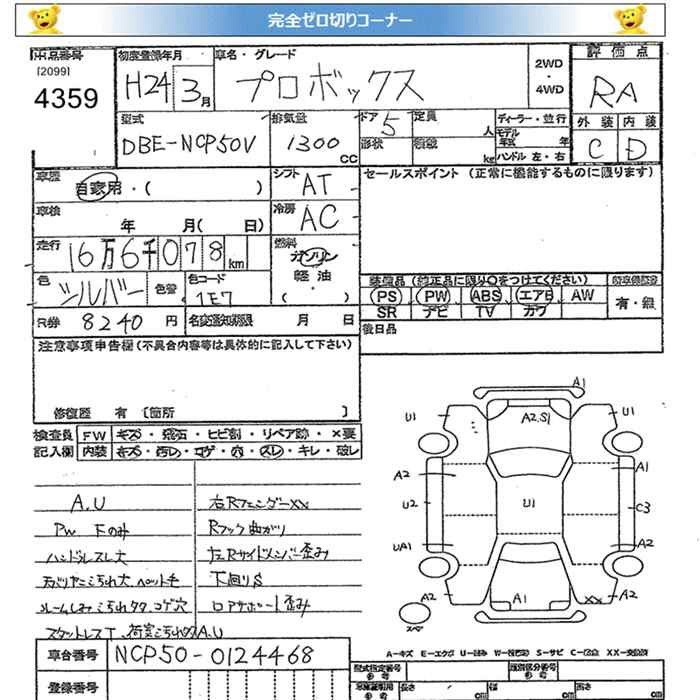 完全ゼロ切りコーナー
出品番号
[2099]
4359
初度登録年月
H24 3月
車名・グレード
プロボックス
2WD
・
4WD
評価点
RA
外装 内装
C D
型式
DBE-NCP50V
排気量
1300
CC
ドア 5
定員
人
形状
積載
kg
ディーラー・並行
モデル
年式 年
ハンドル 左・右
車歴
自家用・( )
シフト
AT
車検
年 月( 日)
冷房
AC
走行
16万6千078 km
燃料
ガソリン
軽油
( )
色
シルバー
色替
色コード
1E7
R券 8240 円
名変通知期限 月 日
セールスポイント (正常に機能するものに限ります)
装備品(純正品に限り○をつけてください)
PS PW ABS エアB AW
SR ナビ TV カワ
有・無
後日品
注意事項申告欄(不具合内容等は具体的に記入して下さい)
修復歴 有 〔箇所 〕
検査員
記入欄
FW キズ・飛石・ヒビ割・リペア跡・×要
内装 キズ・汚レ・コゲ・穴・スレ・キレ・破レ
A.U
PW Fのみ
ハンドルスレ大
ルームしみこちれタタ、コゲ穴
右Rフェンダーxx
Rフック曲がり
左Rサイドメンバー歪み
下廻りS
ロアサポート歪み
A1
U1 A2,S1 U1
A2 A1
U2 U1 C3
UA1 A2
A2 A1 XX A2
スペア
A-キズ E-エクボ U-凹み W-補修跡 S-サビ C-腐食 XX-交換済
車台番号 NCP50-0124468
登録番号
型式指定番号
参考
類別区分番号
参考
長さ cm
幅 cm
高さ cm